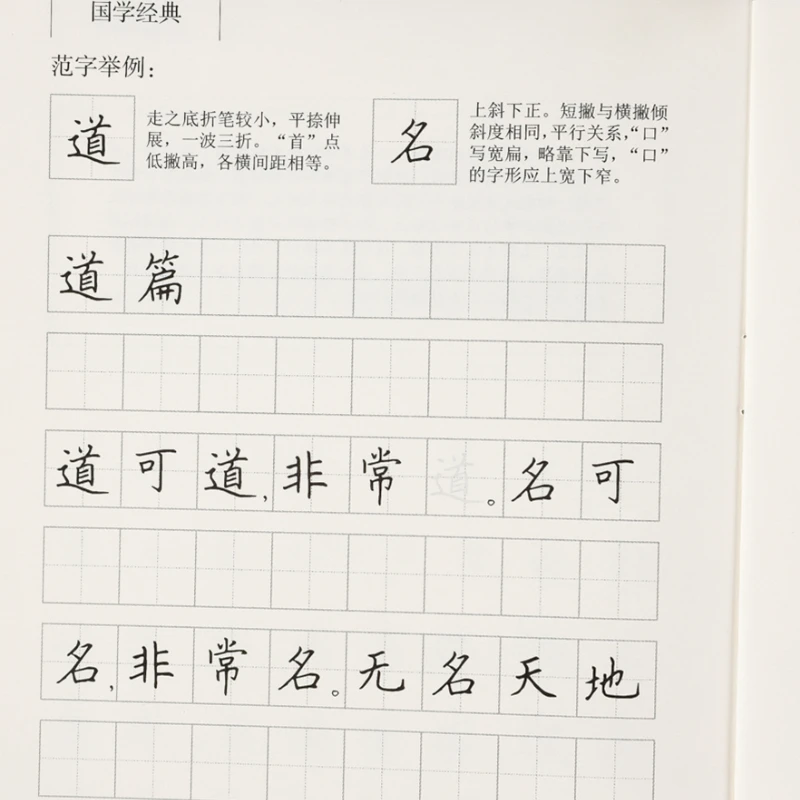 国学经典
范字举例：
道
走之底折笔较小，平捺伸
展，一波三折。“首”点
低撇高，各横间距相等。
名
上斜下正。短撇与横撇倾
斜度相同，平行关系，“口”
写宽扁，略靠下写，“口”
的字形应上宽下窄。
道篇
道可道，非常道。名可
名，非常名。无名天地